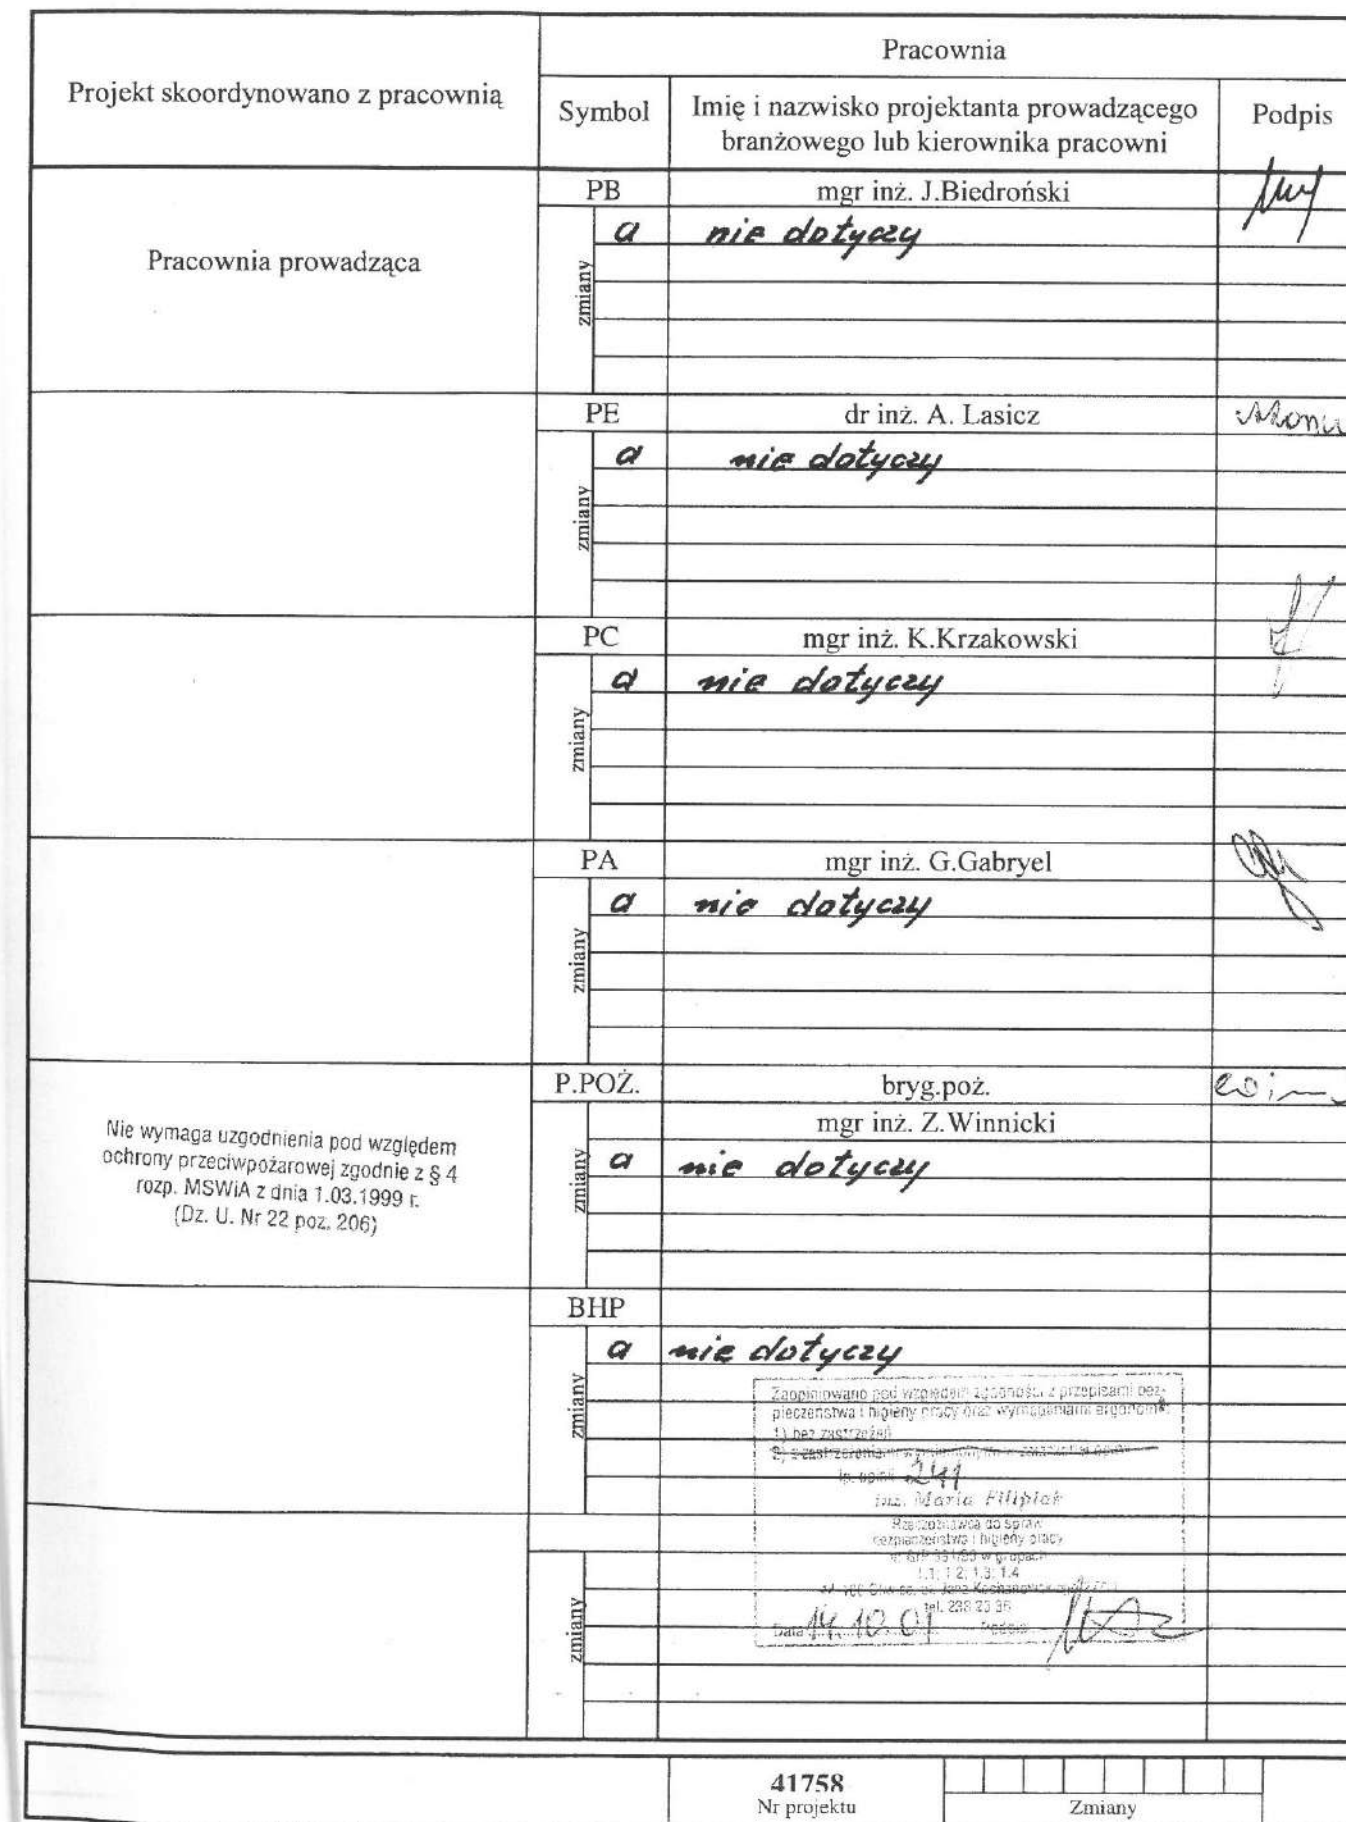 Projekt skoordynowano z pracownią
Pracownia
Symbol
Imię i nazwisko projektanta prowadzącego
branżowego lub kierownika pracowni
Podpis
Pracownia prowadząca
PB
mgr inż. J.Biedroński
zmiany
a
nie dotyczy
PE
dr inż. A. Lasicz
zmiany
a
nie dotyczy
PC
mgr inż. K.Krzakowski
zmiany
a
nie dotyczy
PA
mgr inż. G.Gabryel
zmiany
a
nie dotyczy
Nie wymaga uzgodnienia pod względem
ochrony przeciwpożarowej zgodnie z § 4
rozp. MSWiA z dnia 1.03.1999 r.
(Dz. U. Nr 22 poz. 206)
P.POŻ.
bryg.poż.
mgr inż. Z.Winnicki
zmiany
a
nie dotyczy
BHP
zmiany
a
nie dotyczy
Zaopiniowano pod względem zgodności z przepisami bez-
pieczeństwa i higieny pracy oraz wymaganiami ergonomii.
1) bez zastrzeżeń
2) z zastrzeżeniami
lp. opinii 241
inż. Maria Filipiak
Rzeczoznawca do spraw
bezpieczeństwa i higieny pracy
w grupach
1.1; 1.2; 1.3; 1.4
tel. 238 23 36
Data 14.10.01 Podpis
zmiany
41758
Nr projektu
Zmiany